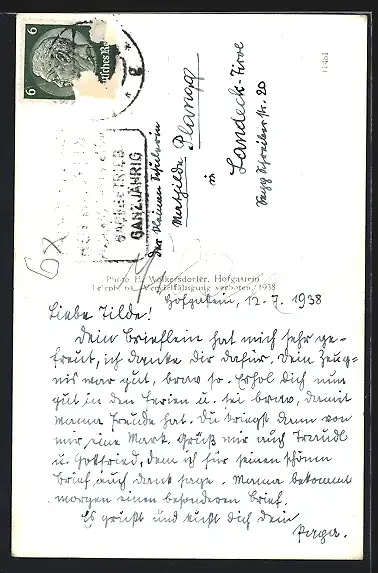 6
6
Deutsches Reich
g
BADEBETRIEB
GANZJÄHRIG
6x
der kleinen Schülerin
Mathilde Plangg
in
Landeck-Tirol
Sepp Schreiber Str. 20
11461
Photo E. Wolkersdorfer, Hofgastein
Vervielfältigung verboten 1938
Hofgastein, 12.7.1938
Liebe Tilde!
Dein Brieflein hat mich sehr ge-
freut, ich danke dir dafür. Dein Zeug-
nis war gut, brav so. Erhol dich nun
gut in den Ferien u. sei brav, damit
Mama Freude hat. Du kriegst dann von
mir eine Mark. Grüß mir auch Traudl
u. Gottfried, dem ich für seinen schönen
Brief auch dank sage. Mama bekommt
morgen einen besonderen Brief.
Es grüßt und küßt dich dein
Papa.